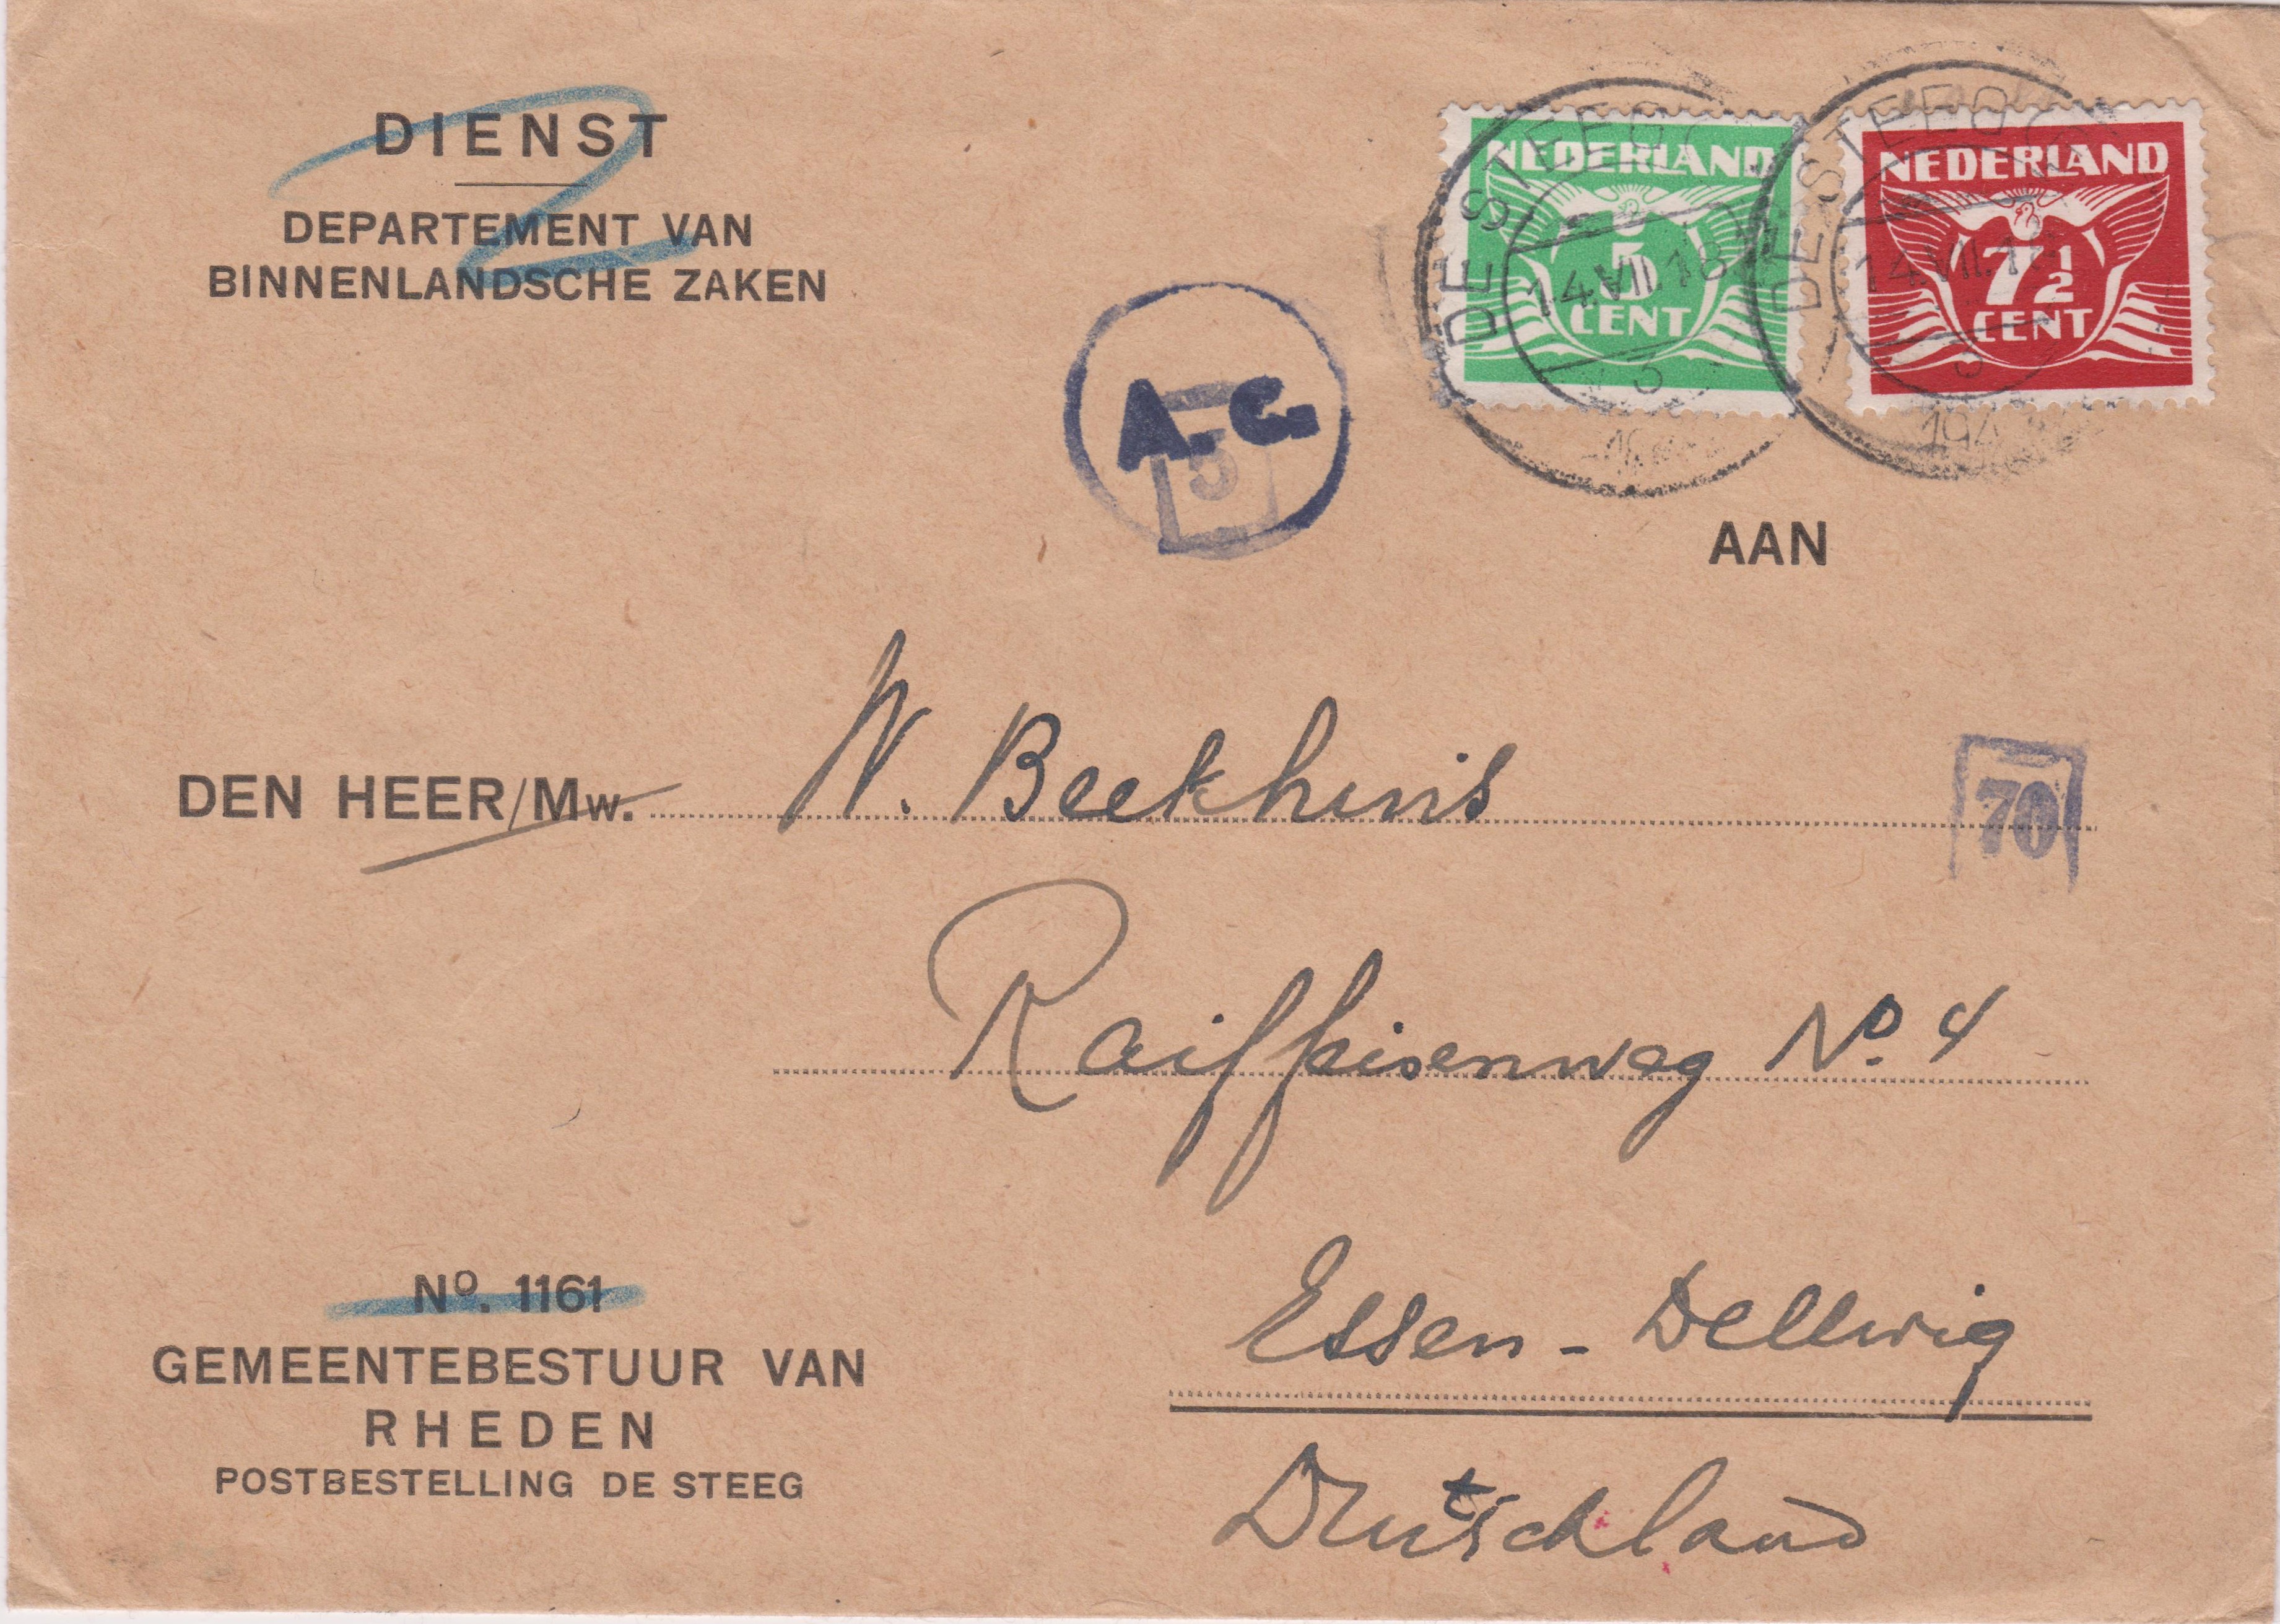 DIENST
DEPARTEMENT VAN
BINNENLANDSCHE ZAKEN
NEDERLAND
5
CENT
NEDERLAND
7½
CENT
DE STEEG
14.VII.18
5
DE STEEG
14.VII.
5
194
A.C.
5
AAN
DEN HEER/Mw. W. Beekhuis
70
Raiffeisenweg No. 4
Essen - Dellwig
Deutschland
No. 1161
GEMEENTEBESTUUR VAN
RHEDEN
POSTBESTELLING DE STEEG